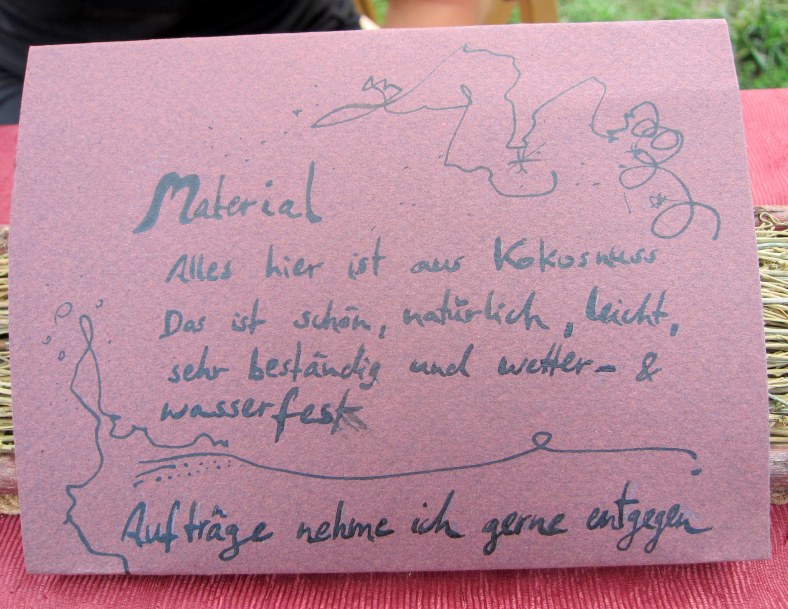 Material
Alles hier ist aus Kokosnuss
Das ist schön, natürlich, leicht,
sehr beständig und wetter- &
wasserfest
Aufträge nehme ich gerne entgegen